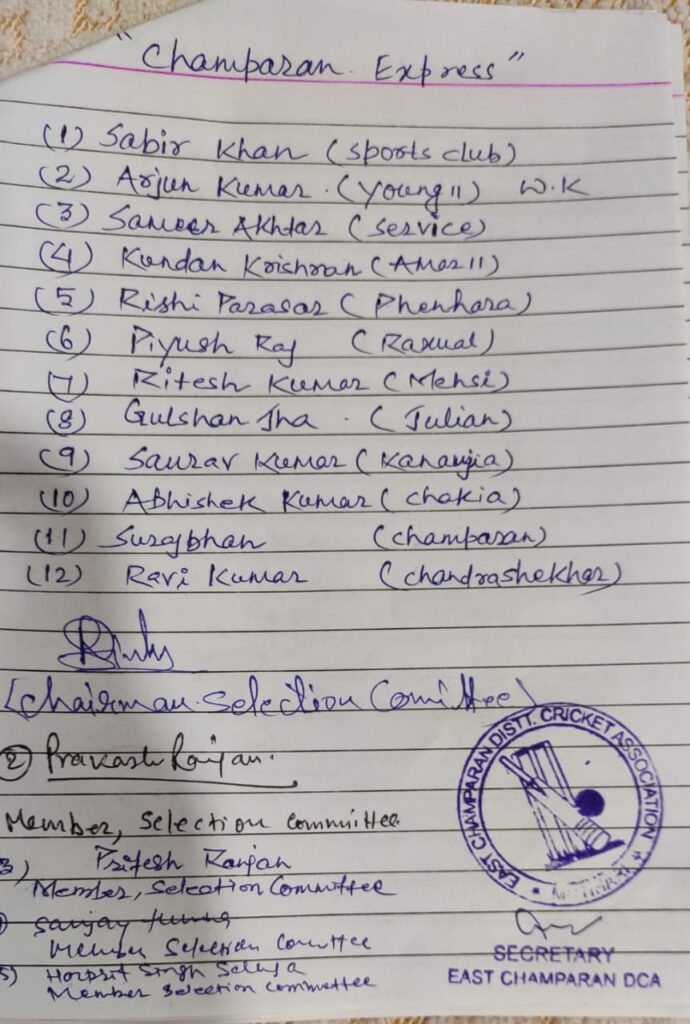 "Champaran Express"
(1) Sabir Khan (sports club)
(2) Arjun Kumar. (Young 11) W.K
(3) Sameer Akhtar (Service)
(4) Kundan Krishran (Amar 11)
(5) Rishi Parasar (Phenhara)
(6) Piyush Raj (Raxual)
(7) Ritesh Kumar (Mehsi)
(8) Gulshan Jha . (Julian)
(9) Saurav Kumar (Kanaujia)
(10) Abhishek Kumar (chakia)
(11) Surajbhan (champaran)
(12) Ravi Kumar (chandrashekhar)
(Chairman Selection Comittee)
(2) Prakash Ranjan.
Member, Selection Committee
3) Pritesh Ranjan
Member, Selection Committee
Sanjay
Member Selection Committee
5) Harprit Singh
Member Selection Committee
EAST CHAMPARAN DISTT. CRICKET ASSOCIATION
SECRETARY
EAST CHAMPARAN DCA